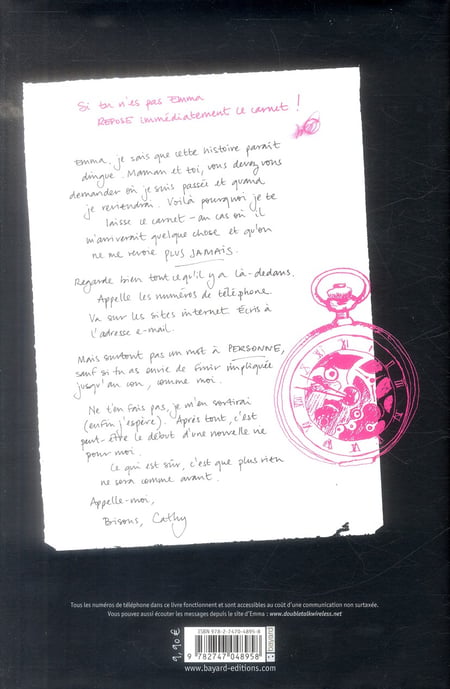 Si tu n'es pas EMMA
REPOSE immédiatement ce carnet !
EMMA, je sais que cette histoire paraît
dingue. Maman et toi, vous devez vous
demander où je suis passée et quand
je reviendrai. Voilà pourquoi je te
laisse ce carnet - au cas où il
m'arriverait quelque chose et qu'on
ne me revoie PLUS JAMAIS.
Regarde bien tout ce qu'il y a là-dedans.
Appelle les numéros de téléphone.
Va sur les sites internet. Écris à
l'adresse e-mail.
Mais surtout pas un mot à PERSONNE,
sauf si tu as envie de finir impliquée
jusqu'au cou, comme moi.
Ne t'en fais pas, je m'en sortirai
(enfin j'espère). Après tout, c'est
peut-être le début d'une nouvelle vie
pour moi.
Ce qui est sûr, c'est que plus rien
ne sera comme avant.
Appelle-moi,
Bisous, Cathy
XII
Tous les numéros de téléphone dans ce livre fonctionnent et sont accessibles au coût d'une communication non surtaxée.
Vous pouvez aussi écouter les messages depuis le site d'Emma : www.doubletalkwireless.net
9,90 €
ISBN 978-2-7470-4895-8
9 782747 048958
bayard
www.bayard-editions.com